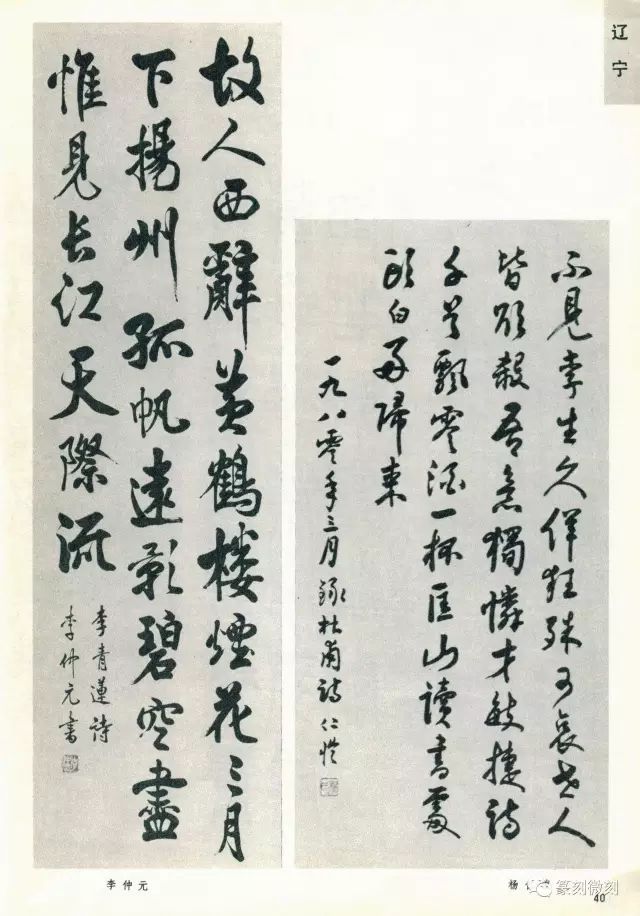 辽宁
故人西辭黄鶴楼煙花三月
下揚州孤帆遠影碧空盡
惟見长江天際流
李青蓮詩
李仲元書
不見李生久佯狂殊可哀世人
皆欲殺吾意獨憐才敏捷詩
千首飄零酒一杯匡山讀書處
頭白好歸来
一九八零年三月録杜甫詩仁愷
李仲元
杨
篆刻微刻
40